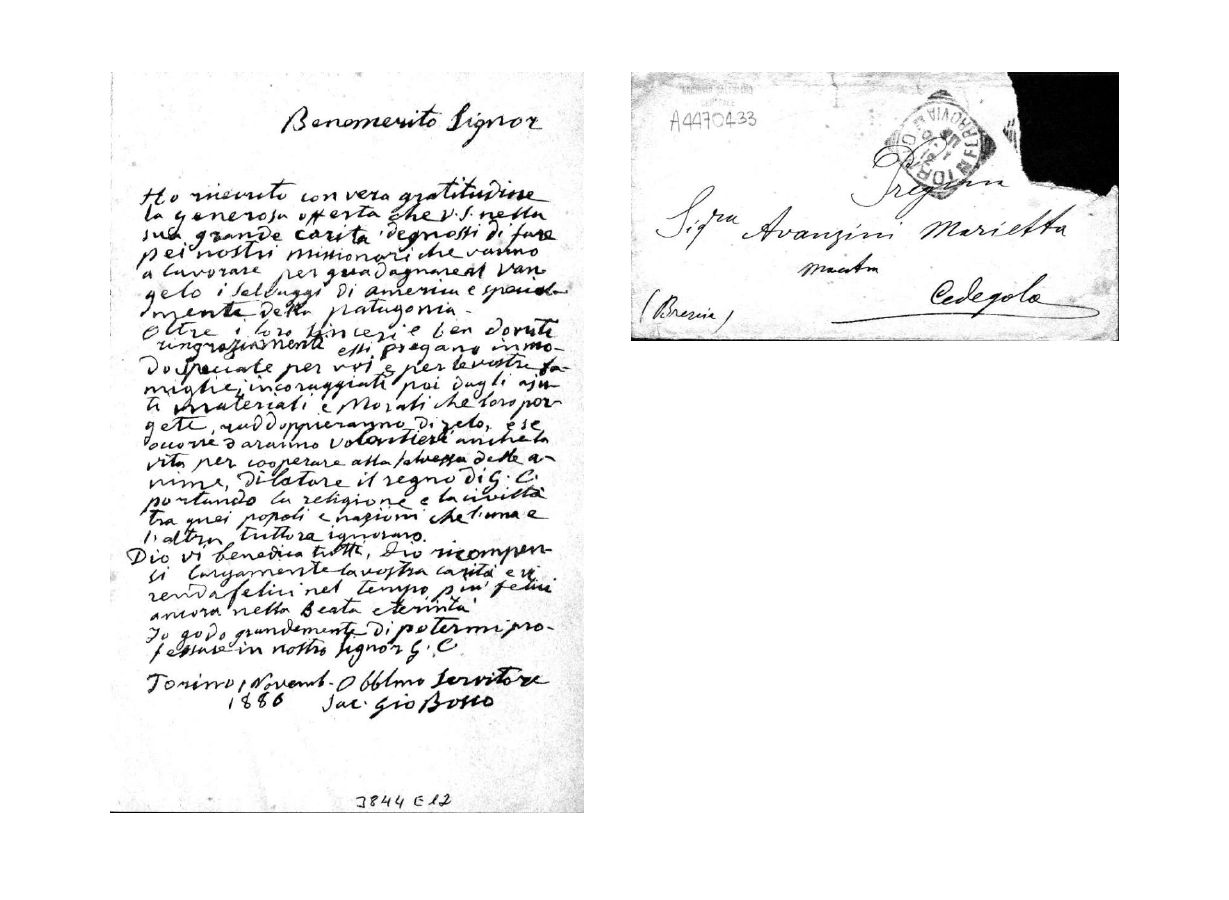 Benemerito Signor
Ho ricevuto con vera gratitudine
la generosa offerta che V. S. nella
sua grande carità degnossi di fare
pei nostri missionari che vanno
a lavorare per guadagnare al Van
gelo i selvaggi di america e special
mente della patagonia.
Oltre i loro sinceri e ben dovuti
ringraziamenti essi pregano in mo-
do speciale per voi e per le vostre fa-
miglie, incoraggiati poi dagli aju-
ti materiali e Morali che loro por-
gete, raddoppieranno di zelo, e se
occorre daranno volontieri anche la
vita per cooperare alla salvezza delle a-
nime, dilatare il regno di G. C.
portando la religione e la civiltà
tra quei popoli e nazioni che l'una e
l'altra tuttora ignorano.
Dio vi benedica tutti, Dio ricompen-
si largamente la vostra carità e vi
renda felici nel tempo, più felici
ancora nella Beata eternità
Io godo grandemente di potermi pro-
fessare in nostro Signor G. C.
Torino, 1 Novemb. Obblmo Servitore
1886 Sac. Gio Bosco
3844 E 12
ARCHIVIO SALESIANO
CENTRALE
A4470433
FERROVIA
Sigra Avanzini Marietta
maestra
Cedegolo
(Brescia)